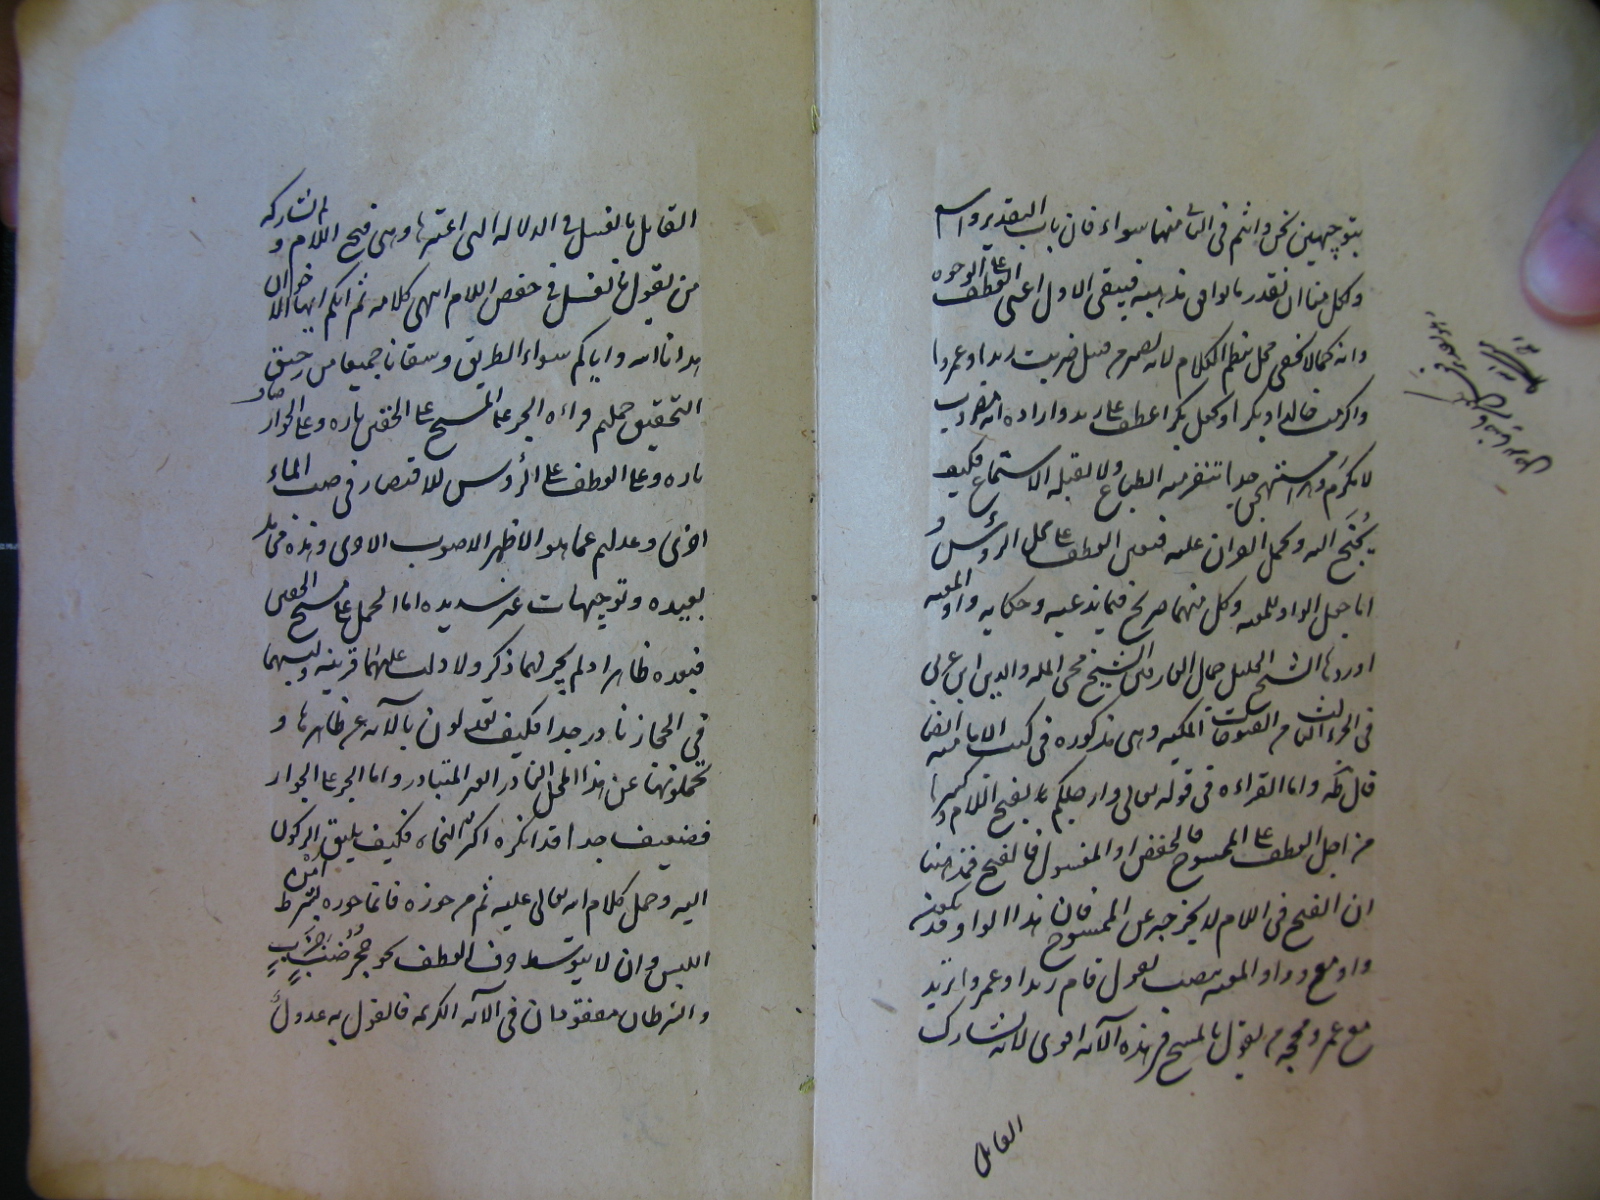 بتوجهين نحن وانتم في الثاني منهما سواء فان باب التقدير واسع
ولكل منا ان يقدر ما يوافق مذهبه فيبقى الاول اعني العطف على الوجوه
وانه كما لا يخفى مخل بنظم الكلام لانه يصير من قبيل ضربت زيدا وعمروا
واكرمت خالدا وبكرا وجعل بكرا عطفا على زيد وارادة انه مضروب
لا مكرم وهو مستهجن جدا تنفر منه الطباع ولا تقبله الاسماع فكيف
يجنح اليه ويحمل القران عليه فتعين العطف على محل الرؤس و
اما جعل الواو للمعية وكل منهما صريح فيما ندعيه وحكاية واو المعية
اوردها الشيخ الجليل جمال العارفين الشيخ محي الملة والدين ابن عربي
في الجزء الثالث من الفتوحات المكية وهي مذكورة في كتب الامامية ايضا
قال واما القراءة في قوله تعالى وارجلكم بفتح اللام وكسرها
من اجل العطف على الممسوح فالخفض او المغسول فالفتح فمذهبنا
ان الفتح في اللام لا يخرجه عن الممسوح فان هذا الواو قد يكون
واو مع وواو المعية تنصب تقول قام زيد وعمروا تريد
مع عمرو وحجة من يقول بالمسح في هذه الآية اقوى لانه يشارك
القايل
القايل بالغسل في الدلالة التي اعتبرها وهي فتح اللام ولم يشاركه
من يقول بالغسل في خفض اللام انتهى كلامه ثم انكم ايها الاخوان
هدانا الله واياكم سواء الطريق وسقانا جميعا من رحيق
التحقيق حملتم قراءة الجر على المسح على الخفين تارة وعلى الجوار
تارة وعلى العطف على الرؤس للاقتصار في صب الماء
اخرى وعدلتم عما هو الاظهر الاصوب الاولى وهذه محامل
بعيدة وتوجيهات غير سديدة اما الحمل على مسح الخفين
فبعده ظاهر اذ لم يجر لهما ذكر ولا دلت عليهما قرينة ولبسهما
في الحجاز نادر جدا فكيف تعدلون بالآية عن ظاهرها و
تحملونها على هذا المحمل النادر الغير المتبادر واما الجر على الجوار
فضعيف جدا قد انكره اكثر النحاة فكيف يليق الركون
اليه وحمل كلام الله تعالى عليه ثم من جوزه فانما جوزه بشرط امن
اللبس وان لا يتوسط حرف العطف نحو جحر ضب خرب
والشرطان مفقودان في الآية الكريمة فالقول به عدول